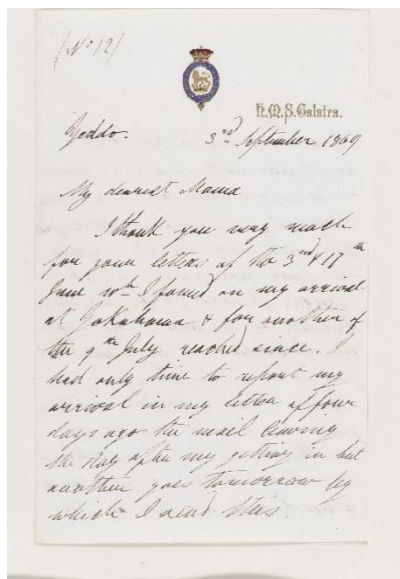 (No 12)
H.M.S. Galatea.
Yeddo.
3rd September 1869
My dearest Mama
I thank you very much
for your letters of the 3rd & 17th
June wh I found on my arrival
at Yokuhama & for another of
the 9th July reached since. I
had only time to report my
arrival in my letter of four
days ago the mail leaving
the day after my getting in but
another goes tomorrow by
which I send this.